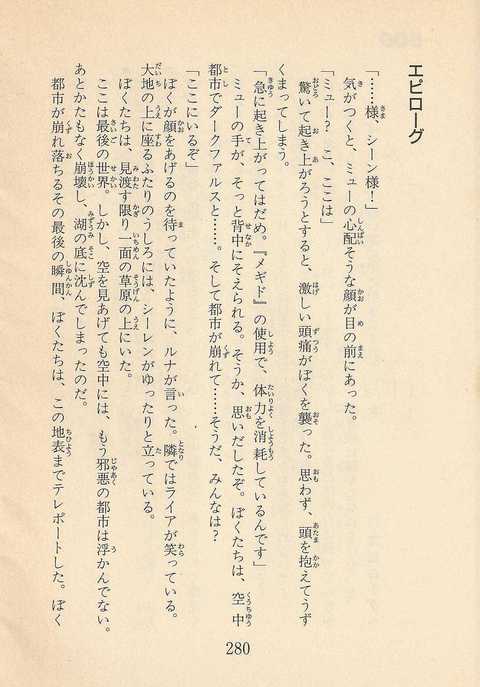 エピローグ
「……様、シーン様！」
気がつくと、ミューの心配そうな顔が目の前にあった。
「ミュー？　こ、ここは」
驚いて起き上がろうとすると、激しい頭痛がぼくを襲った。思わず、頭を抱えてうず
くまってしまう。
「急に起き上がってはだめ。『メギド』の使用で、体力を消耗しているんです」
ミューの手が、そっと背中にそえられる。そうか、思いだしたぞ。ぼくたちは、空中
都市でダークファルスと……。そして都市が崩れて……そうだ、みんなは？
「ここにいるぞ」
ぼくが顔をあげるのを待っていたように、ルナが言った。隣ではライアが笑っている。
大地の上に座るふたりのうしろには、シーレンがゆったりと立っている。
ぼくたちは、見渡す限り一面の草原の上にいた。
ここは最後の世界。しかし、空を見あげても空中には、もう邪悪の都市は浮かんでない。
あとかたもなく崩壊し、湖の底に沈んでしまったのだ。
都市が崩れ落ちるその最後の瞬間、ぼくたちは、この地表までテレポートした。ぼく
280